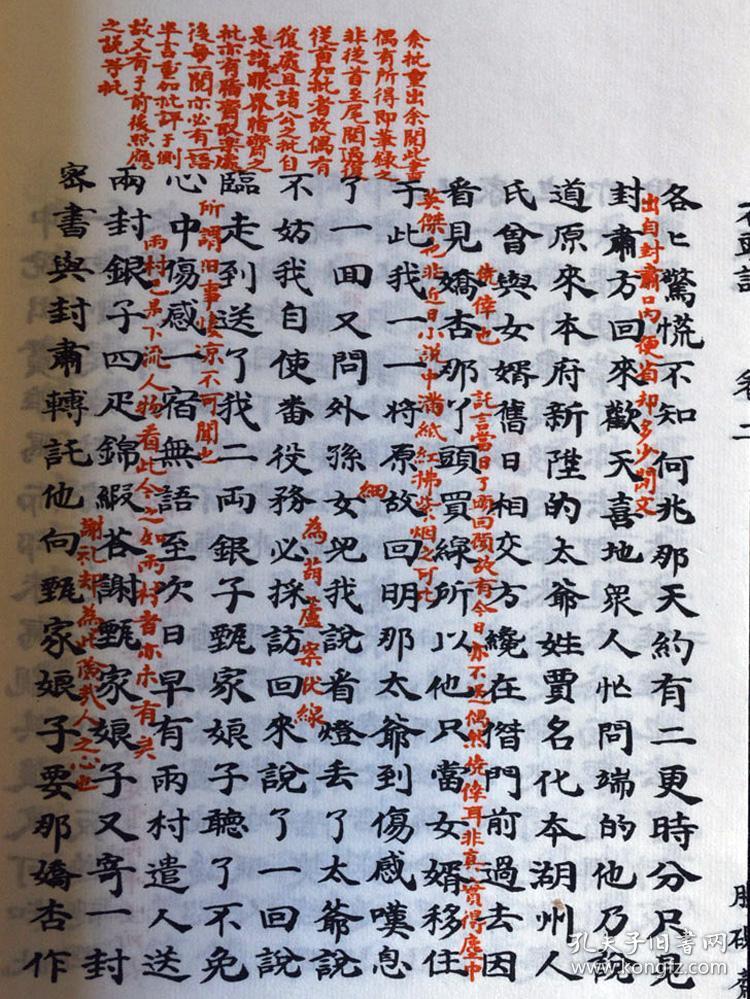 余批重出余閱此書
偶有所得即筆錄之
非從首至尾閱過復
從首加批者故偶有
復處且諸公之批自
是諸公眼界脂齋之
批亦有脂齋取樂處
後每一閱亦必有一語
半言重加批評于側
故又有于前後照應
之說等批
各匕驚慌不知何兆那天約有二更時分只見
出自封肅口內便省却多少閒文
封肅方回來歡天喜地眾人忙問端的他乃說
道原來本府新陞的太爺姓賈名化本湖州人
氏曾與女婿舊日相交方纔在偺門前過去因
僥倖也
託言當日丫頭回顧故有今日亦不過偶然僥倖耳非真實得塵中
看見嬌杏那丫頭買線所以他只當女婿移住
英傑也非近日小說中滿紙紅拂紫烟之可比
于此我一一將原故回明那太爺到傷感嘆息
細
了一回又問外孫女兒我說看燈丟了太爺說
為葫蘆案伏線
不妨我自使番役務必採訪回來說了一回說
臨走到送了我二兩銀子甄家娘子聽了不免
所謂旧事悽凉不可聞也
心中傷感一宿無語至次日早有雨村遣人送
雨村已是下流人物看此今之如雨村者亦未有矣
兩封銀子四疋錦緞荅謝甄家娘子又寄一封
謝礼却為此險哉人之心也
密書與封肅轉託他向甄家娘子要那嬌杏作
石頭記
卷二
脂硯齋
孔夫子旧书网
www.kongfz.com